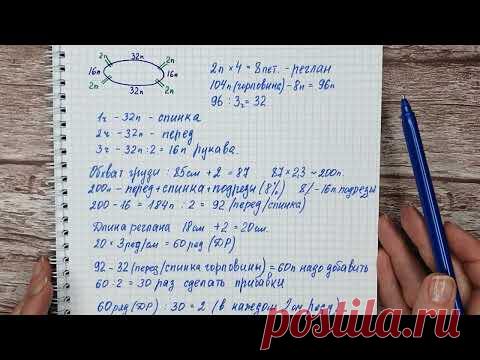 2п 32п 2п
16п 16п
2п 32п 2п
2п × 4 = 8 пет. - реглан
104п (горловина) - 8п = 96п
96 : 3ч = 32
1ч - 32п - спинка
2ч - 32п - перед
3ч - 32п : 2 = 16п рукава.
Обхват груди : 85см + 2 = 87 87 × 2,3 ~ 200п.
200п - перед + спинка + подрезы (8%) 8% - 16п подрезы
200 - 16 = 184п : 2 = 92 (перед/спинка)
Длина реглана 18см + 2 = 20см.
20 × 3ряд/см = 60ряд (ДР)
92 - 32 (перед/спинка горловины) = 60п надо добавить
60 : 2 = 30 раз сделать прибавки
60ряд (ДР) : 30 = 2 (в каждом 2ом ряду)
postila.ru